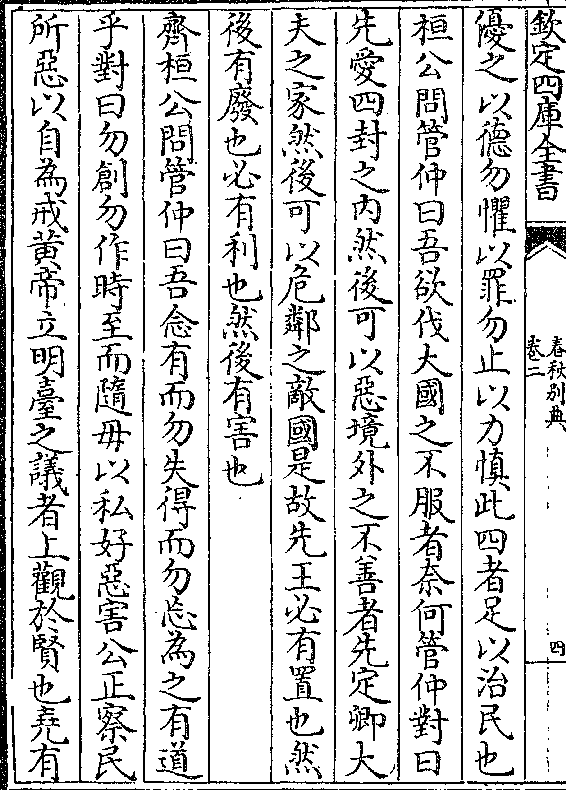 欽定四庫全書
春秋別典
卷二
四
優之以德勿懼以罪勿止以力慎此四者足以治民也
桓公問管仲曰吾欲伐大國之不服者奈何管仲對曰
先愛四封之内然後可以惡境外之不善者先定卿大
夫之家然後可以危鄰之敵國是故先王必有置也然
後有廢也必有利也然後有害也
齊桓公問管仲曰吾念有而勿失得而勿忘為之有道
乎對曰勿創勿作時至而隨毋以私好惡害公正察民
所惡以自為戒黄帝立明臺之議者上觀於賢也堯有